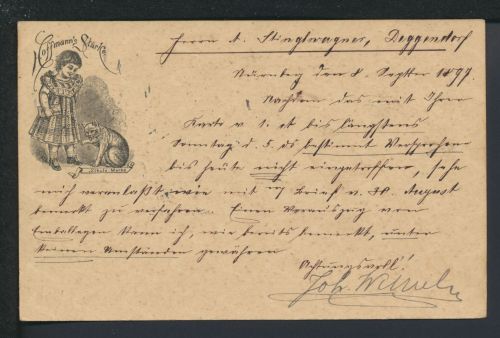 Hoffmann's Stärke
Herrn A. Stinglwagner, Deggendorf
Nürnberg den 8. Septbr 1897.
Nachdem das mit Ihrer
Karte v. 1. ct bis längstens
Sonntag d. 5. ds bestimmt Versprochene
bis heute nicht eingetroffen, sehe
mich veranlaßt, wie mit Brief v. August
bemerkt zu verfahren. Einen Vorauszug von
Emballagen kann ich, wie bereits bemerkt, unter
keinen Umständen gewähren
Achtungsvoll!
Joh.
Schutz-Marke